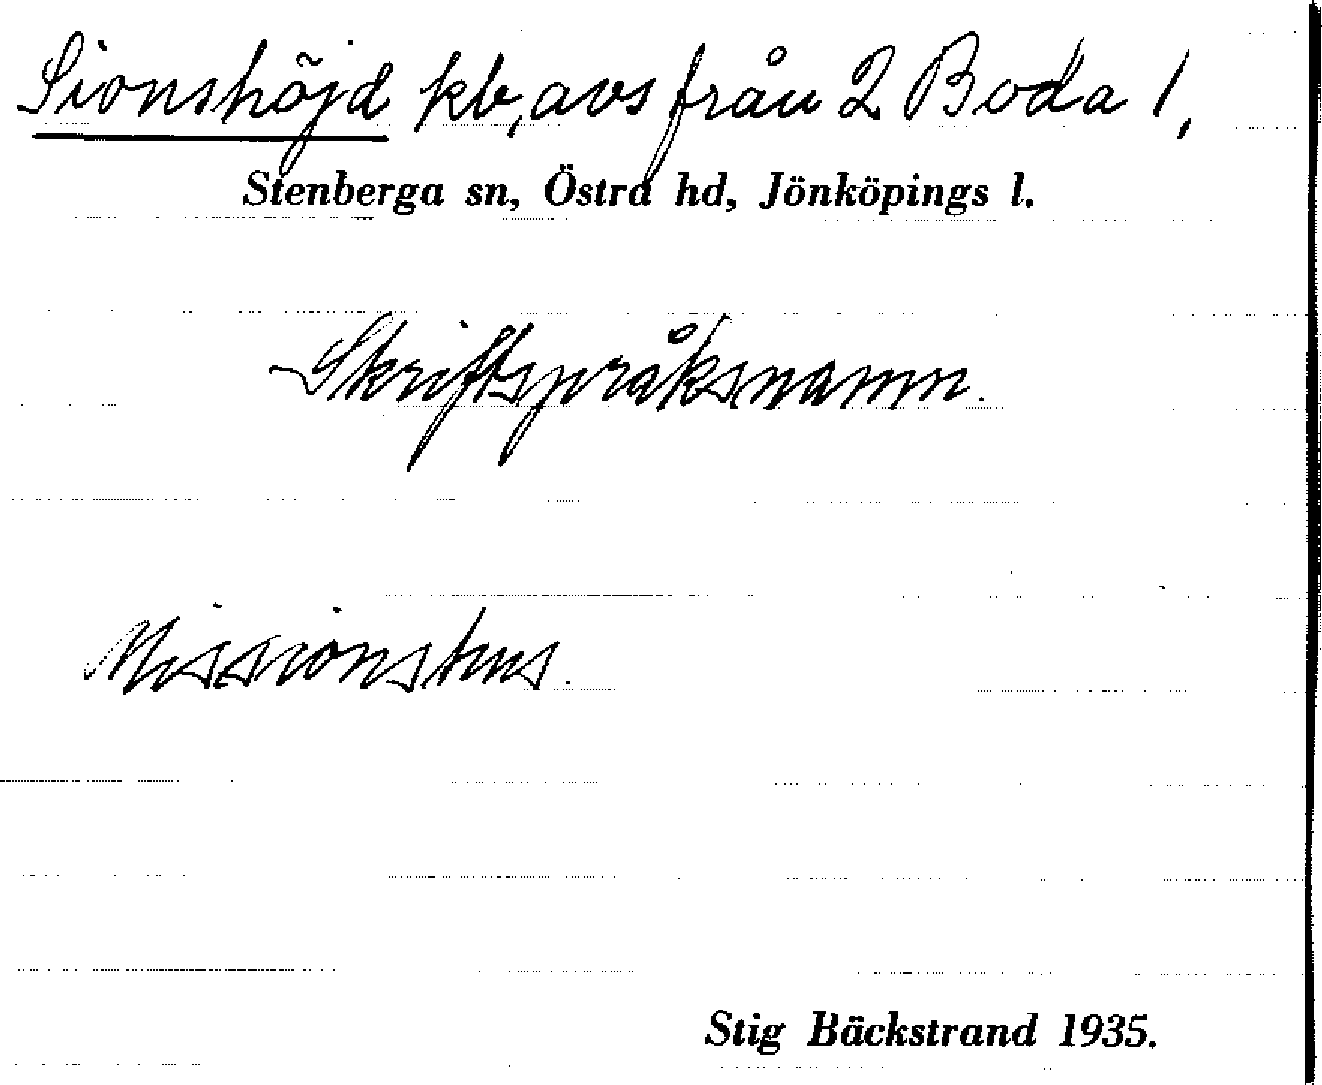 Sionshöjd kb, avs från 2 Boda 1,
Stenberga sn, Östra hd, Jönköpings l.
Skriftspråksnamn.
Missionshus.
Stig Bäckstrand 1935.